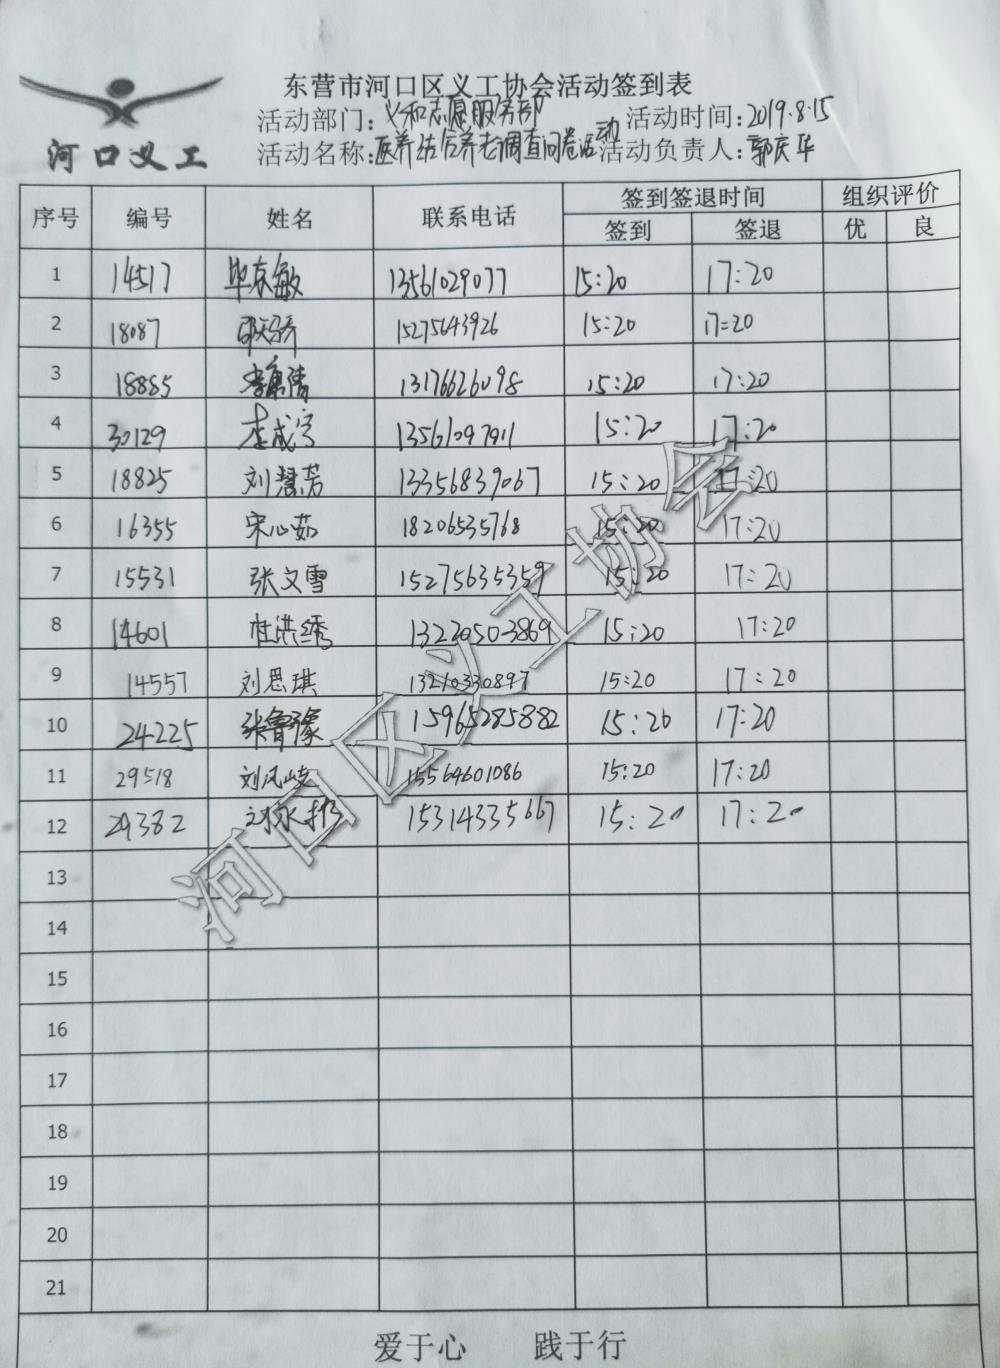 东营市河口区义工协会活动签到表
活动部门:义和志愿服务部 活动时间:2019.8.15
河口义工 活动名称:医养结合养老调查问卷活动 活动负责人:郭庆华
序号 编号 姓名 联系电话 签到签退时间 组织评价
签到 签退 优 良
1 14517 毕京敏 13561029077 15:20 17:20
2 18087 15275643926 15:20 17:20
3 18885 李康清 13176626098 15:20 17:20
4 30129 李成宇 13561097911 15:20 17:20
5 18825 刘慧芳 13356839067 15:20 17:20
6 16355 宋心茹 18206535768 15:20 17:20
7 15531 张文雪 15275635359 15:20 17:20
8 14601 杜洪绣 13220503869 15:20 17:20
9 14557 刘思琪 13210330897 15:20 17:20
10 24225 张鲁豫 15965285882 15:20 17:20
11 29518 刘凤岐 15564601086 15:20 17:20
12 29382 15314335667 15:20 17:20
13
14
15
16
17
18
19
20
21
爱于心 践于行
河口区义工协会